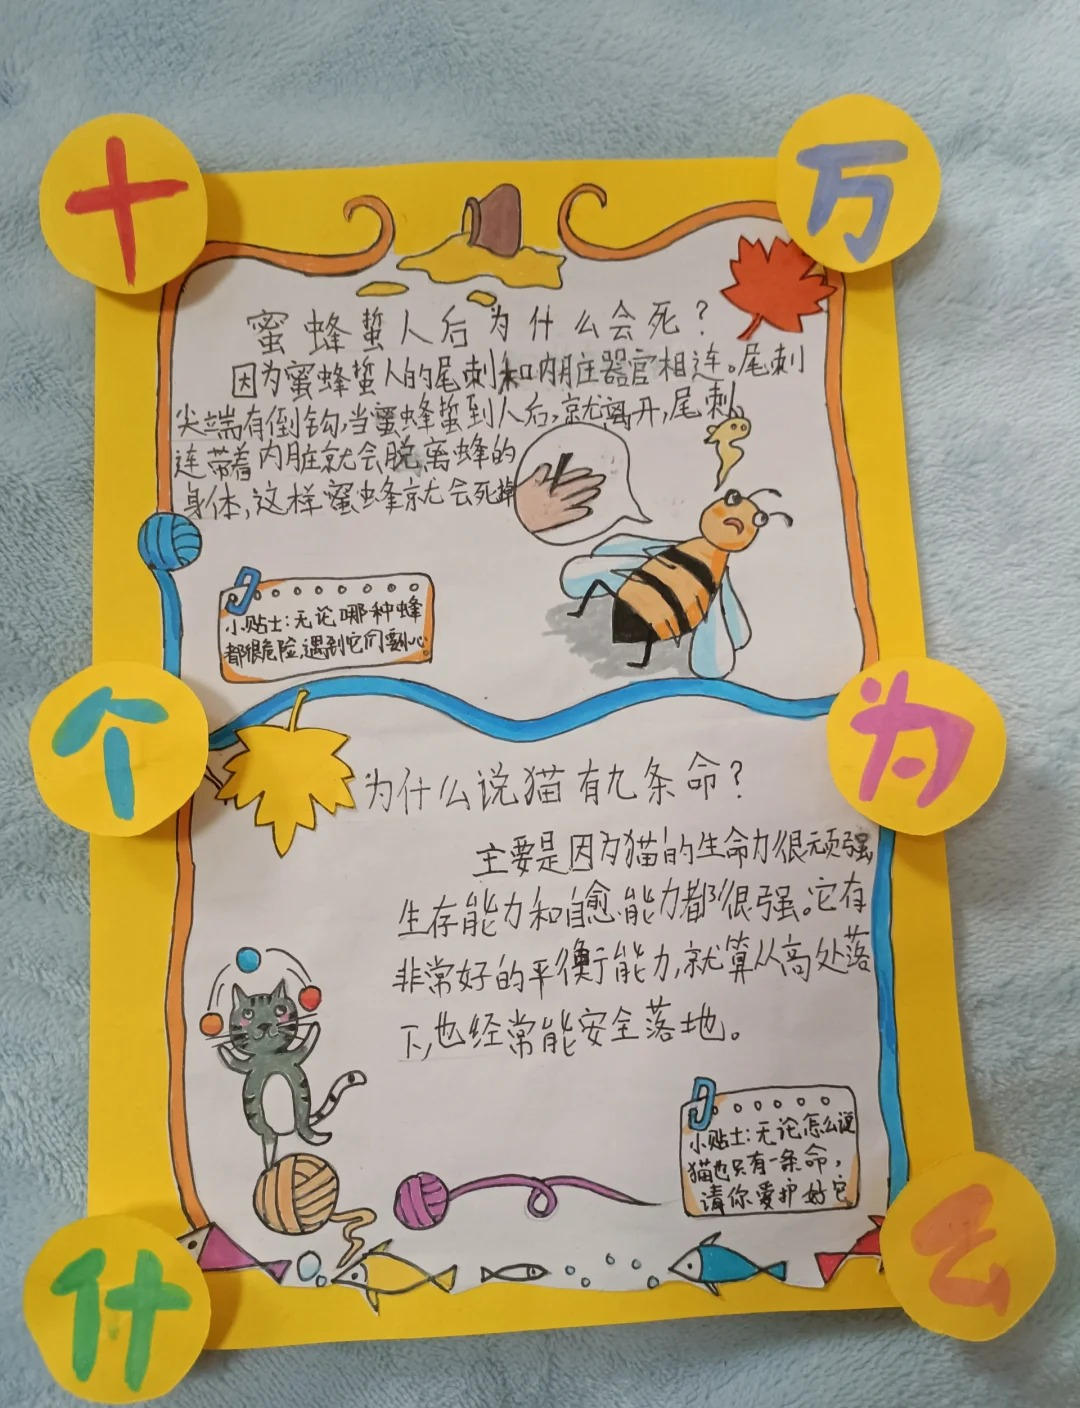 十
万
个
为
什
么
蜜蜂蜇人后为什么会死？
因为蜜蜂蜇人的尾刺和内脏器官相连。尾刺
尖端有倒钩,当蜜蜂蜇到人后,就离开,尾刺
连带着内脏就会脱离蜂的
身体,这样蜜蜂就会死掉
小贴士:无论哪种蜂
都很危险,遇到它们要小心
为什么说猫有九条命？
主要是因为猫的生命力很顽强
生存能力和自愈能力都很强。它有
非常好的平衡能力,就算从高处落
下,也经常能安全落地。
小贴士:无论怎么说
猫也只有一条命,
请你爱护好它